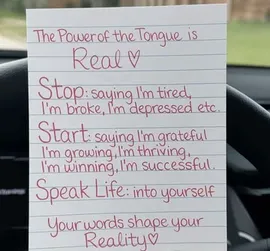 The Power of the Tongue is
Real ♡
Stop: saying I'm tired,
I'm broke, I'm depressed etc.
Start: saying I'm grateful
I'm growing, I'm thriving,
I'm winning, I'm successful.
Speak Life: into yourself
Your words shape your
Reality♡